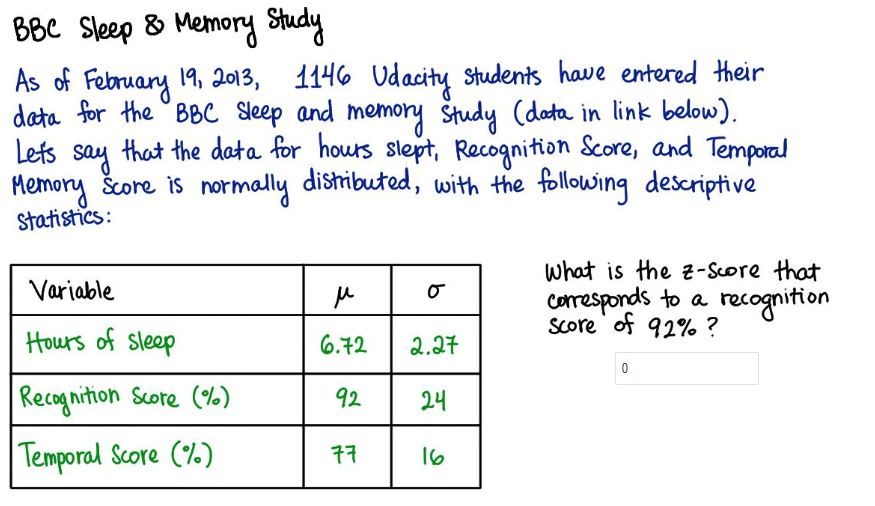 BBC Sleep & Memory Study
As of February 19, 2013, 1146 Udacity students have entered their
data for the BBC Sleep and memory Study (data in link below).
Lets say that the data for hours slept, Recognition Score, and Temporal
Memory Score is normally distributed, with the following descriptive
statistics:
Variable μ σ
Hours of sleep 6.72 2.27
Recognition Score (%) 92 24
Temporal Score (%) 77 16
What is the z-score that
corresponds to a recognition
score of 92%?
0